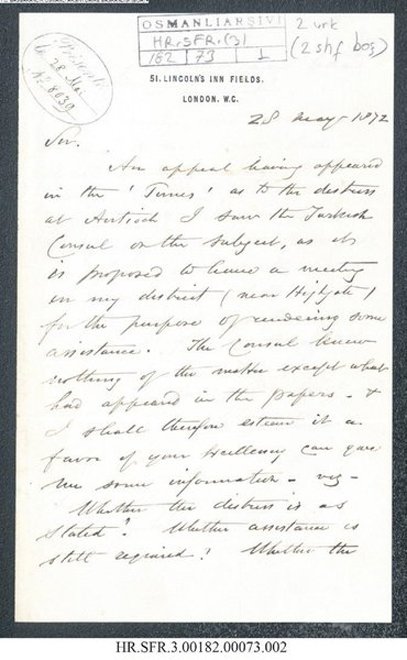 OSMANLI ARŞİVİ
HR.SFR.(3)
182 73 1
2 urk
(2 shf boş)
28 Mai
No 8030
51. LINCOLN'S INN FIELDS.
LONDON. W.C.
28 May 1872
Sir.
An appeal having appeared
in the 'Times' as to the distress
at Antioch I saw the Turkish
Consul on the subject, as it
is proposed to have a meeting
in my district (near Highgate)
for the purpose of rendering some
assistance. The Consul knew
nothing of the matter except what
had appeared in the papers - &
I shall therefore esteem it a
favor if your Excellency can give
me some information - viz -
Whether the distress is as
stated? Whether assistance is
still required? Whether the
HR.SFR.3.00182.00073.002